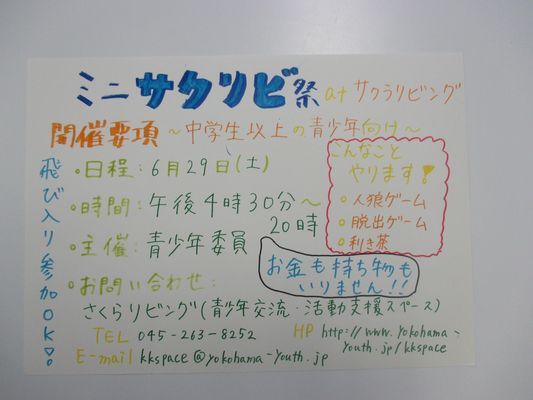 ミニサクリビ祭 at サクラリビング
開催要項 ～中学生以上の青少年向け～
飛び入り参加OK!
・日程：6月29日(土)
・時間：午後4時30分～
20時
・主催：青少年委員
・お問い合わせ：
さくらリビング(青少年交流・活動支援スペース)
こんなこと
やります!
・人狼ゲーム
・脱出ゲーム
・利き茶
お金も持ち物も
いりません!!
TEL 045-263-8252
HP http://www.yokohama-
youth.jp/kkspace
E-mail kkspace@yokohama-youth.jp